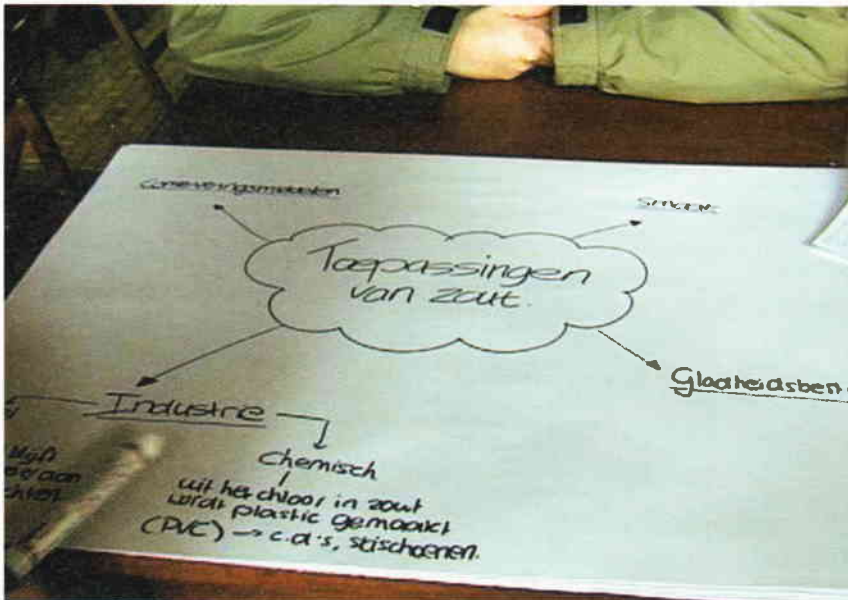 Conserveringsmiddelen
Smaak
Toepassingen
van zout.
Gladheidsbest
Industrie
blijft
Chemisch
uit het chloor in zout
wordt plastic gemaakt
(PVC) → c.d.'s, skischoenen.